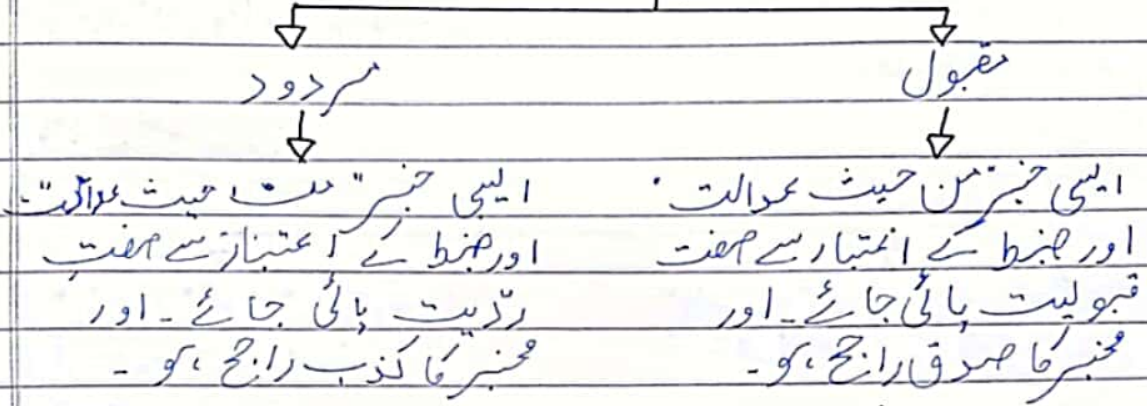 مقبول
ایسی خبر "من حیث عدالت"
اور ضبط کے اعتبار سے صفت
قبولیت پائی جائے۔ اور
مخبر کا صدق راجح ہو۔
مردود
ایسی خبر "من حیث عدالت"
اور ضبط کے اعتبار سے صفتِ
ردّیت پائی جائے۔ اور
مخبر کا کذب راجح ہو۔